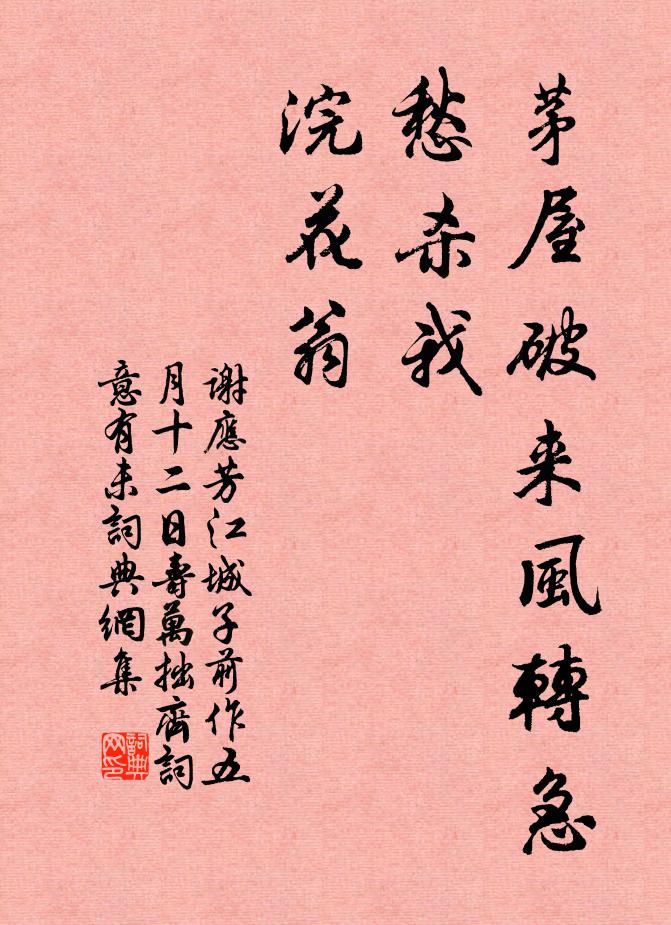 茅屋破来風轉急
愁杀我
浣花翁
谢應芳江城子前作五
月十二日壽萬拙齊詞
意有未詞典網集
詞典网印